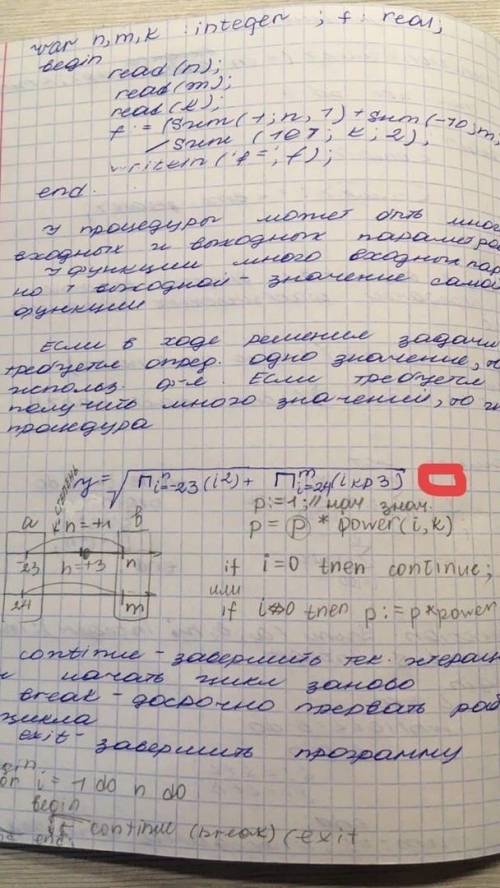 var n, m, k : integer ; f : real;
begin
read(n);
read(m);
read(k);
f := (Sum(1; n, 1) + sum(-10; m,
/ sum (107; k; 2);
writeln('f=', f);
end.
У процедуры может быть мног
входных и выходных параметров
У функции много входных пар
но 1 выходной - значение самой
функции
Если в ходе решения задачи
требуется опред. одно значение, то
использ. ф-я. Если требуется
получить много значений, то
процедура
степень
y = √Π i=-23 n (i^2) + Π i=24 m (i кр 3)
p:=1; // нач. знач.
a k n=+1 b
p = p * power(i, k)
-23 h=+3 n
if i=0 then continue;
или
24 m
if i<>0 then p:= p*power
continue - завершить тек. итерац
и начать цикл заново
break - досрочно прервать раб
цикла
exit - завершить программу
gin
or i = 1 do n do
begin
if continue (break) (exit
end;